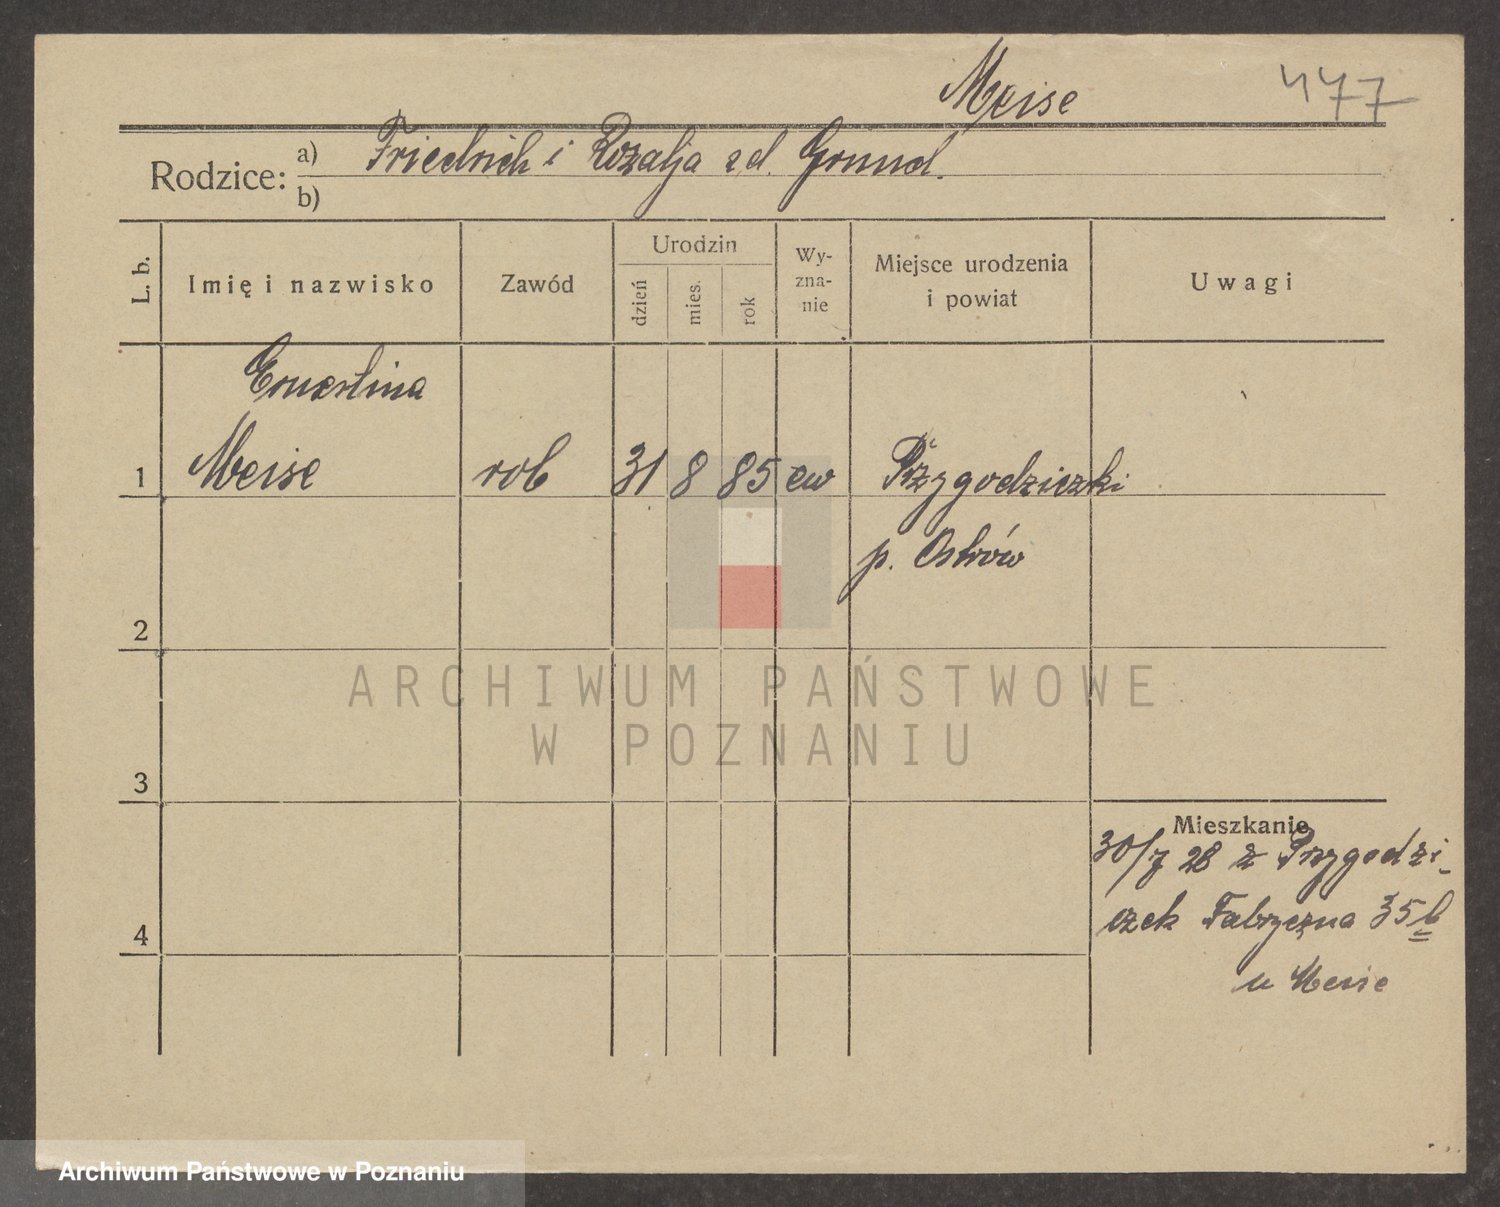 Meise
477
Rodzice:
a) Friedrich i Rozalja zd. Grund.
b)
L. b.
Imię i nazwisko
Zawód
Urodzin
dzień
mies.
rok
Wy-
zna-
nie
Miejsce urodzenia
i powiat
Uwagi
Ernestina
1 Meise rob 31 8 85 ew Przygodziczki
p. Ostrów
2
3
4
Mieszkanie
30/7 28 z Przygodzi-
czek Fabryczna 35 b
u Meise
ARCHIWUM PAŃSTWOWE
W POZNANIU
Archiwum Państwowe w Poznaniu